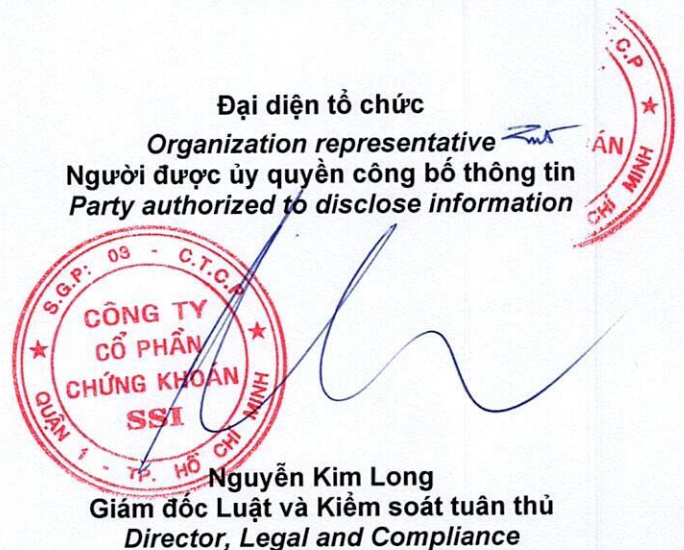 Đại diện tổ chức
Organization representative
Người được ủy quyền công bố thông tin
Party authorized to disclose information
C.P
ÁN
CHÍ MINH
S.G.P: 03 - C.T.C.P
CÔNG TY
CỔ PHẦN
CHỨNG KHOÁN
SSI
QUẬN 1 - TP. HỒ CHÍ MINH
Nguyễn Kim Long
Giám đốc Luật và Kiểm soát tuân thủ
Director, Legal and Compliance